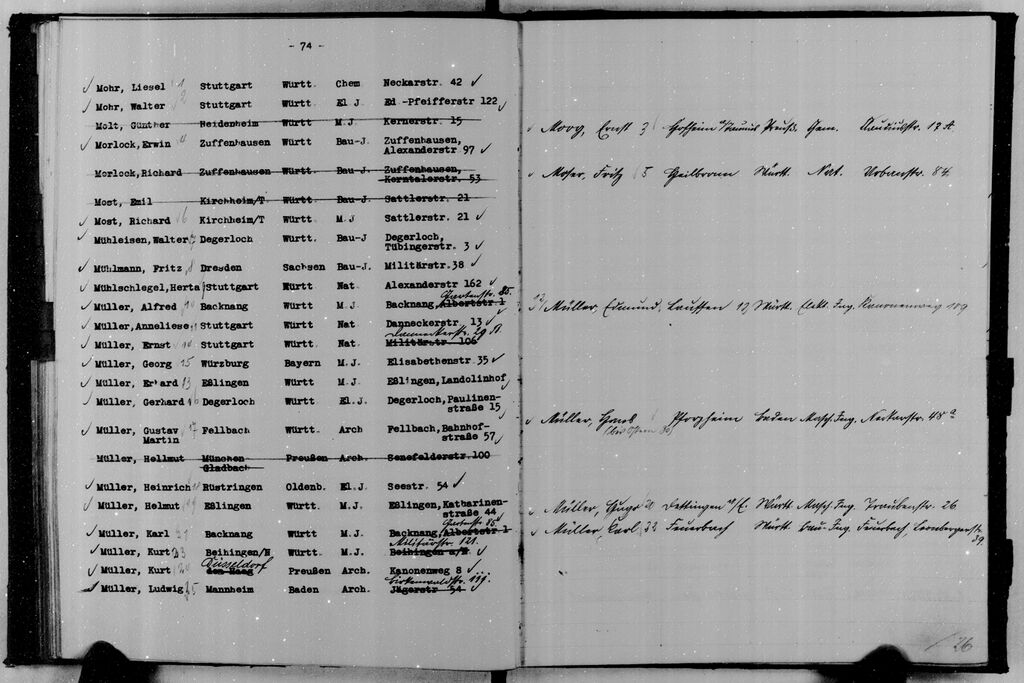 - 74 -
Mohr, Liesel 1 Stuttgart Württ Chem Neckarstr. 42
Mohr, Walter 2 Stuttgart Württ. El J Ed.-Pfeifferstr 122
Molt, Günther Heidenheim Württ M.J Kernerstr. 15
Morlock, Erwin 4 Zuffenhausen Württ Bau-J Zuffenhausen,
Alexanderstr 97
Morlock, Richard Zuffenhausen Württ. Bau-J Zuffenhausen,
Korntalerstr. 53
Most, Emil Kirchheim/T Württ Bau-J Sattlerstr. 21
Most, Richard 6 Kirchheim/T Württ M.J Sattlerstr. 21
Mühleisen, Walter 7 Degerloch Württ. Bau-J Degerloch,
Tübingerstr. 3
Mühlmann, Fritz 8 Dresden Sachsen Bau-J. Militärstr. 38
Mühlschlegel, Herta 9 Stuttgart Württ Nat Alexanderstr 162
Gartenstr. 85.
Müller, Alfred 10 Backnang Württ M.J. Backnang, Albertstr 1
Müller, Anneliese 11 Stuttgart Württ Nat Danneckerstr. 13
Danneckerstr. 29 A.
Müller, Ernst 14 Stuttgart Württ Nat. Militärstr 106
Müller, Georg 15 Würzburg Bayern M.J. Elisabethenstr. 35
Müller, Erhard 13 Eßlingen Württ M.J. Eßlingen, Landolinhof
Müller, Gerhard 16 Degerloch Württ El.J. Degerloch, Paulinen-
straße 15
Müller, Gustav 17 Fellbach Württ. Arch Fellbach, Bahnhof-
Martin straße 57
Müller, Hellmut München- Preußen Arch. Senefelderstr. 100
Gladbach
Müller, Heinrich Rüstringen Oldenb. El.J. Seestr. 54
Müller, Helmut 19 Eßlingen Württ M.J. Eßlingen, Katharinen-
straße 44
Gartenstr 85
Müller, Karl 21 Backnang Württ M.J. Backnang, Albertstr 1
Militärstr. 121.
Müller, Kurt 23 Beihingen/N Württ. M.J. Beihingen a/N
Düsseldorf
Müller, Kurt 24 den Haag Preußen Arch. Kanonenweg 8
Birkenwaldstr. 119.
Müller, Ludwig 25 Mannheim Baden Arch. Jägerstr 54
Moog, Ernst 3 Hofheim a/Taunus Preuß. Chem. 17 A.
Moser, Fritz 5 Heilbronn Württ. Nat. Urbanstr. 84
12 Müller, Edmund, Lauffen Württ. Elekt. Ing. Kanonenweg 189
Müller, Pforzheim Baden Masch. Ing. Neckarstr. 48 a
Müller, Hugo 20 Dettingen a/E. Württ Masch Ing Traubenstr. 26
Müller, Carl 22 Feuerbach Württ Bau-Ing. Feuerbach, Leonbergerstr.
39.
26